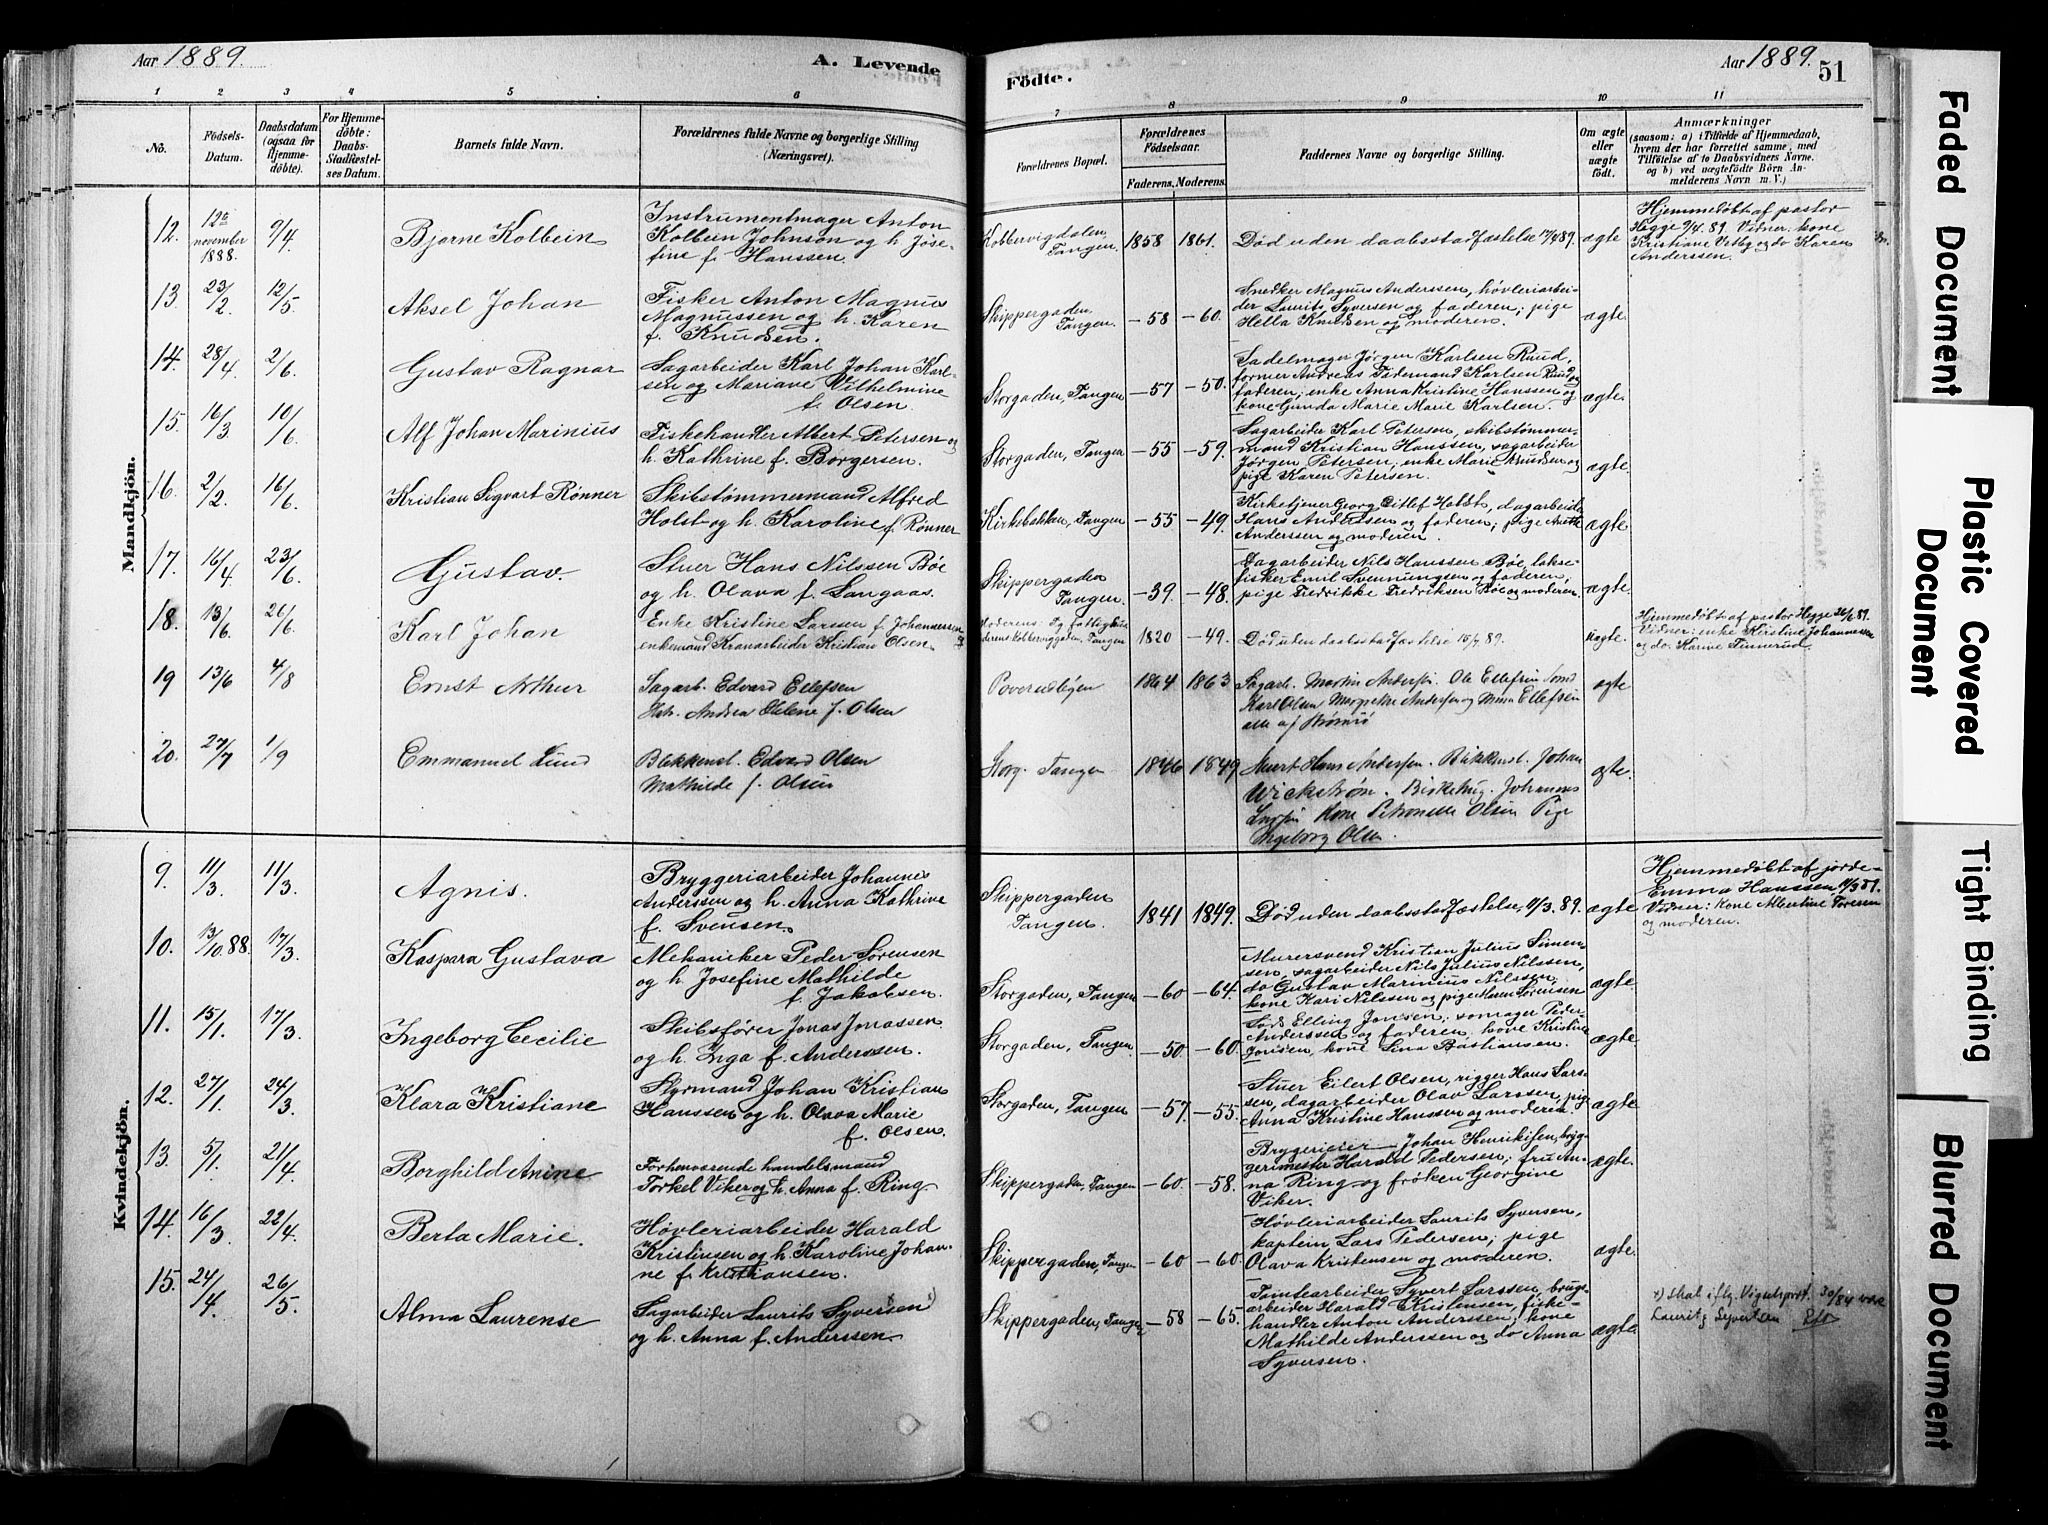 Aar 1889.
A. Levende
Födte.
Aar 1889.
51
1 2 3 4 5 6 7 8 9 10 11
No.
Födsels-
Datum.
Daabsdatum
(ogsaa for
Hjemme-
döbte).
For Hjemme-
döbte:
Daabs-
Stadfæstel-
ses Datum.
Barnets fulde Navn.
Forældrenes fulde Navne og borgerlige Stilling
(Næringsvei).
Forældrenes Bopæl.
Forældrenes
Födselsaar.
Faderens. Moderens.
Faddernes Navne og borgerlige Stilling.
Om ægte
eller
uægte
födt.
Anmærkninger
(saasom: a) i Tilfælde af Hjemmedaab,
hvem der har forrettet samme, med
Tilföielse af to Daabsvidners Navne.
og b) ved uægtefödte Börn An-
melderens Navn m. V.)
Mandkjön.
12.
12te
november
1888.
9/4
Bjarne Kolbein
Instrumentmager Anton
Kolbein Johnson og h. Jose-
fine f. Hanssen.
Kobbervigdalen,
Tangen.
1858 1861.
Død uden daabsstadfæstelse 17/4 89.
ægte
Hjemmedøbt af pastor
Hegge 9/4. 89. Vidner: kone
Kristiane Vetby og do Karen
Anderssen.
13. 23/2. 12/5
Aksel Johan
Fisker Anton Magnus
Magnussen og h. Karen
f. Knudsen.
Skippergaden,
Tangen.
-58 -60.
Snedker Magnus Anderssen, høvleriarbei-
der Laurits Syversen og faderen; pige
Hella Knudsen og moderen.
ægte.
14. 28/4. 2/6
Gustav Ragnar
Sagarbeider Karl Johan Karl-
sen og Mariane Vilhelmine
f. Olsen.
Storgaden, Tangen
-57 -50.
Sadelmager Jørgen Karlsen Ruud,
former Andreas Ferdinand Karlsen Ruud og
faderen; enke Anna Kristine Hanssen og
kone Gunda Marie Marie Karlsen.
ægte.
15. 16/3. 10/6
Alf Johan Marinius
Fiskehandler Albert Petersen og
h. Kathrine f. Borgersen.
Storgaden, Tangen
-55 -59.
Sagarbeider Karl Petersen, skibstømmer-
mand Kristian Hanssen, sagarbeider
Jørgen Petersen; enke Marie Knudsen og
pige Karen Petersen.
ægte.
16. 2/2. 16/6
Kristian Sigvart Rønner
Skibstømmermand Alfred
Holst og h. Karoline f. Rønner
Kirkebakken, Tangen
-55 -49.
Kirketjener Georg Ditlef Holst, dagarbeider
Hans Anderssen og faderen; pige Anette
Anderssen og moderen.
ægte.
17. 16/4. 23/6
Gustav.
Stuer Hans Nilssen Bøe
og h. Olava f. Langaas.
Skippergaden
Tangen.
-39. -48.
Dagarbeider Nils Hanssen Bøe, lakse-
fisker Emil Svennungsen og faderen,
pige Fredrikke Fredriksen Bøe og moderen.
ægte.
18. 13/6. 26/6
Karl Johan
Enke Kristine Larssen f. Johannessen
enkemand Kranarbeider Kristian Olsen.
1820 -49.
Død uden daabsstadfæstelse 15/7 89.
uægte.
Hjemmedøbt af pastor Hegge 26/6. 89.
Vidner: enke Kirstine Johannessen
og do. Karine Finnerud.
19 13/6 4/8
Ernst Arthur
Sagarb. Edvard Ellefsen
Hstr. Andrea Helene f. Olsen
1864 1863
Sagarb. Martin Andersen. Ole Ellefsen
Karl Olsen Margrethe Andersen og Mina Ellefsen
alle af Strømsø
ægte
20. 27/7 1/9
Emmanuel Lund
Blikkensl. Edvard Olsen
Mathilde f. Olsen
Storg. Tangen
1846 1849
Hans Andersen. Blikkensl. Johan
Wickstrøm. Johannes
Kone Petronelle Olsen Pige
Ingeborg Olsen.
ægte.
Kvindekjön.
9. 11/3. 11/3.
Agnis.
Bryggeriarbeider Johannes
Anderssen og h. Anna Kathrine
f. Svensen.
Skippergaden
Tangen.
1841 1849.
Død uden daabsstadfæstelse, 11/3. 89.
ægte
Hjemmedøbt af jorde-
Emma Hanssen 11/3 89.
Vidner: kone Albertine Toresen
og moderen.
10. 13/10. 88. 17/3.
Kaspara Gustava
Mekaniker Peder Sørensen
og h. Josefine Mathilde
f. Jakobsen.
Storgaden, Tangen
-60 -64.
Murersvend Kristian Julius Simen-
sen, sagarbeider Nils Julius Nilssen,
do Gustav Marinius Nilssen;
kone Kari Nilssen og pige Maren Sørensen
ægte.
11. 15/1. 17/3.
Ingeborg Cecilie
Skibsfører Jonas Jonassen
og h. Inga f. Anderssen.
Storgaden, Tangen.
-50 -60.
Elling Jonsen; somager Peder
Anderssen og faderen. kone Kristine
Jonsen, kone Lina Bastiansen.
ægte.
12. 27/1. 24/3.
Klara Kristiane
Styrmand Johan Kristian
Hanssen og h. Olava Marie
f. Olsen.
Storgaden, Tangen
-57. -55.
Stuer Eilert Olsen, rigger Hans Lars-
sen, dagarbeider Olav Larssen, pige
Anna Kristine Hanssen og moderen.
ægte.
13. 5/1. 21/4.
Borghild Anine
Forhenværende handelsmand
Torkel Viker og h. Anna f. Ring.
Skippergaden, Tangen
-60. -58.
Bryggerieier Johan Henriksen, bryg-
gerimester Harald Pedersen; fru An-
na Ring og frøken Georgine
Viker.
ægte.
14. 16/3. 22/4.
Berta Marie.
Høvleriarbeider Harald
Kristensen og h. Karoline Johan-
ne f. Kristiansen.
Skippergaden, Tangen
-60 -60.
Høvleriarbeider Laurits Syversen,
kaptein Lars Pedersen; pige
Olava Kristensen og moderen.
ægte.
15. 24/4. 26/5.
Alma Laurense
Sagarbeider Laurits Syversen x)
og h. Anna f. Anderssen.
Skippergaden, Tangen
-58 -65.
Tomtearbeider Syvert Larssen, brugs-
arbeider Harald Kristensen, fiske-
handler Anton Anderssen; kone
Mathilde Anderssen og do Anna
Syversen.
ægte.
x) skal iflg. Vigselsprot. 30/84 være
Lauritz Syvertsen
Faded Document
Plastic Covered
Document
Tight Binding
Blurred Document